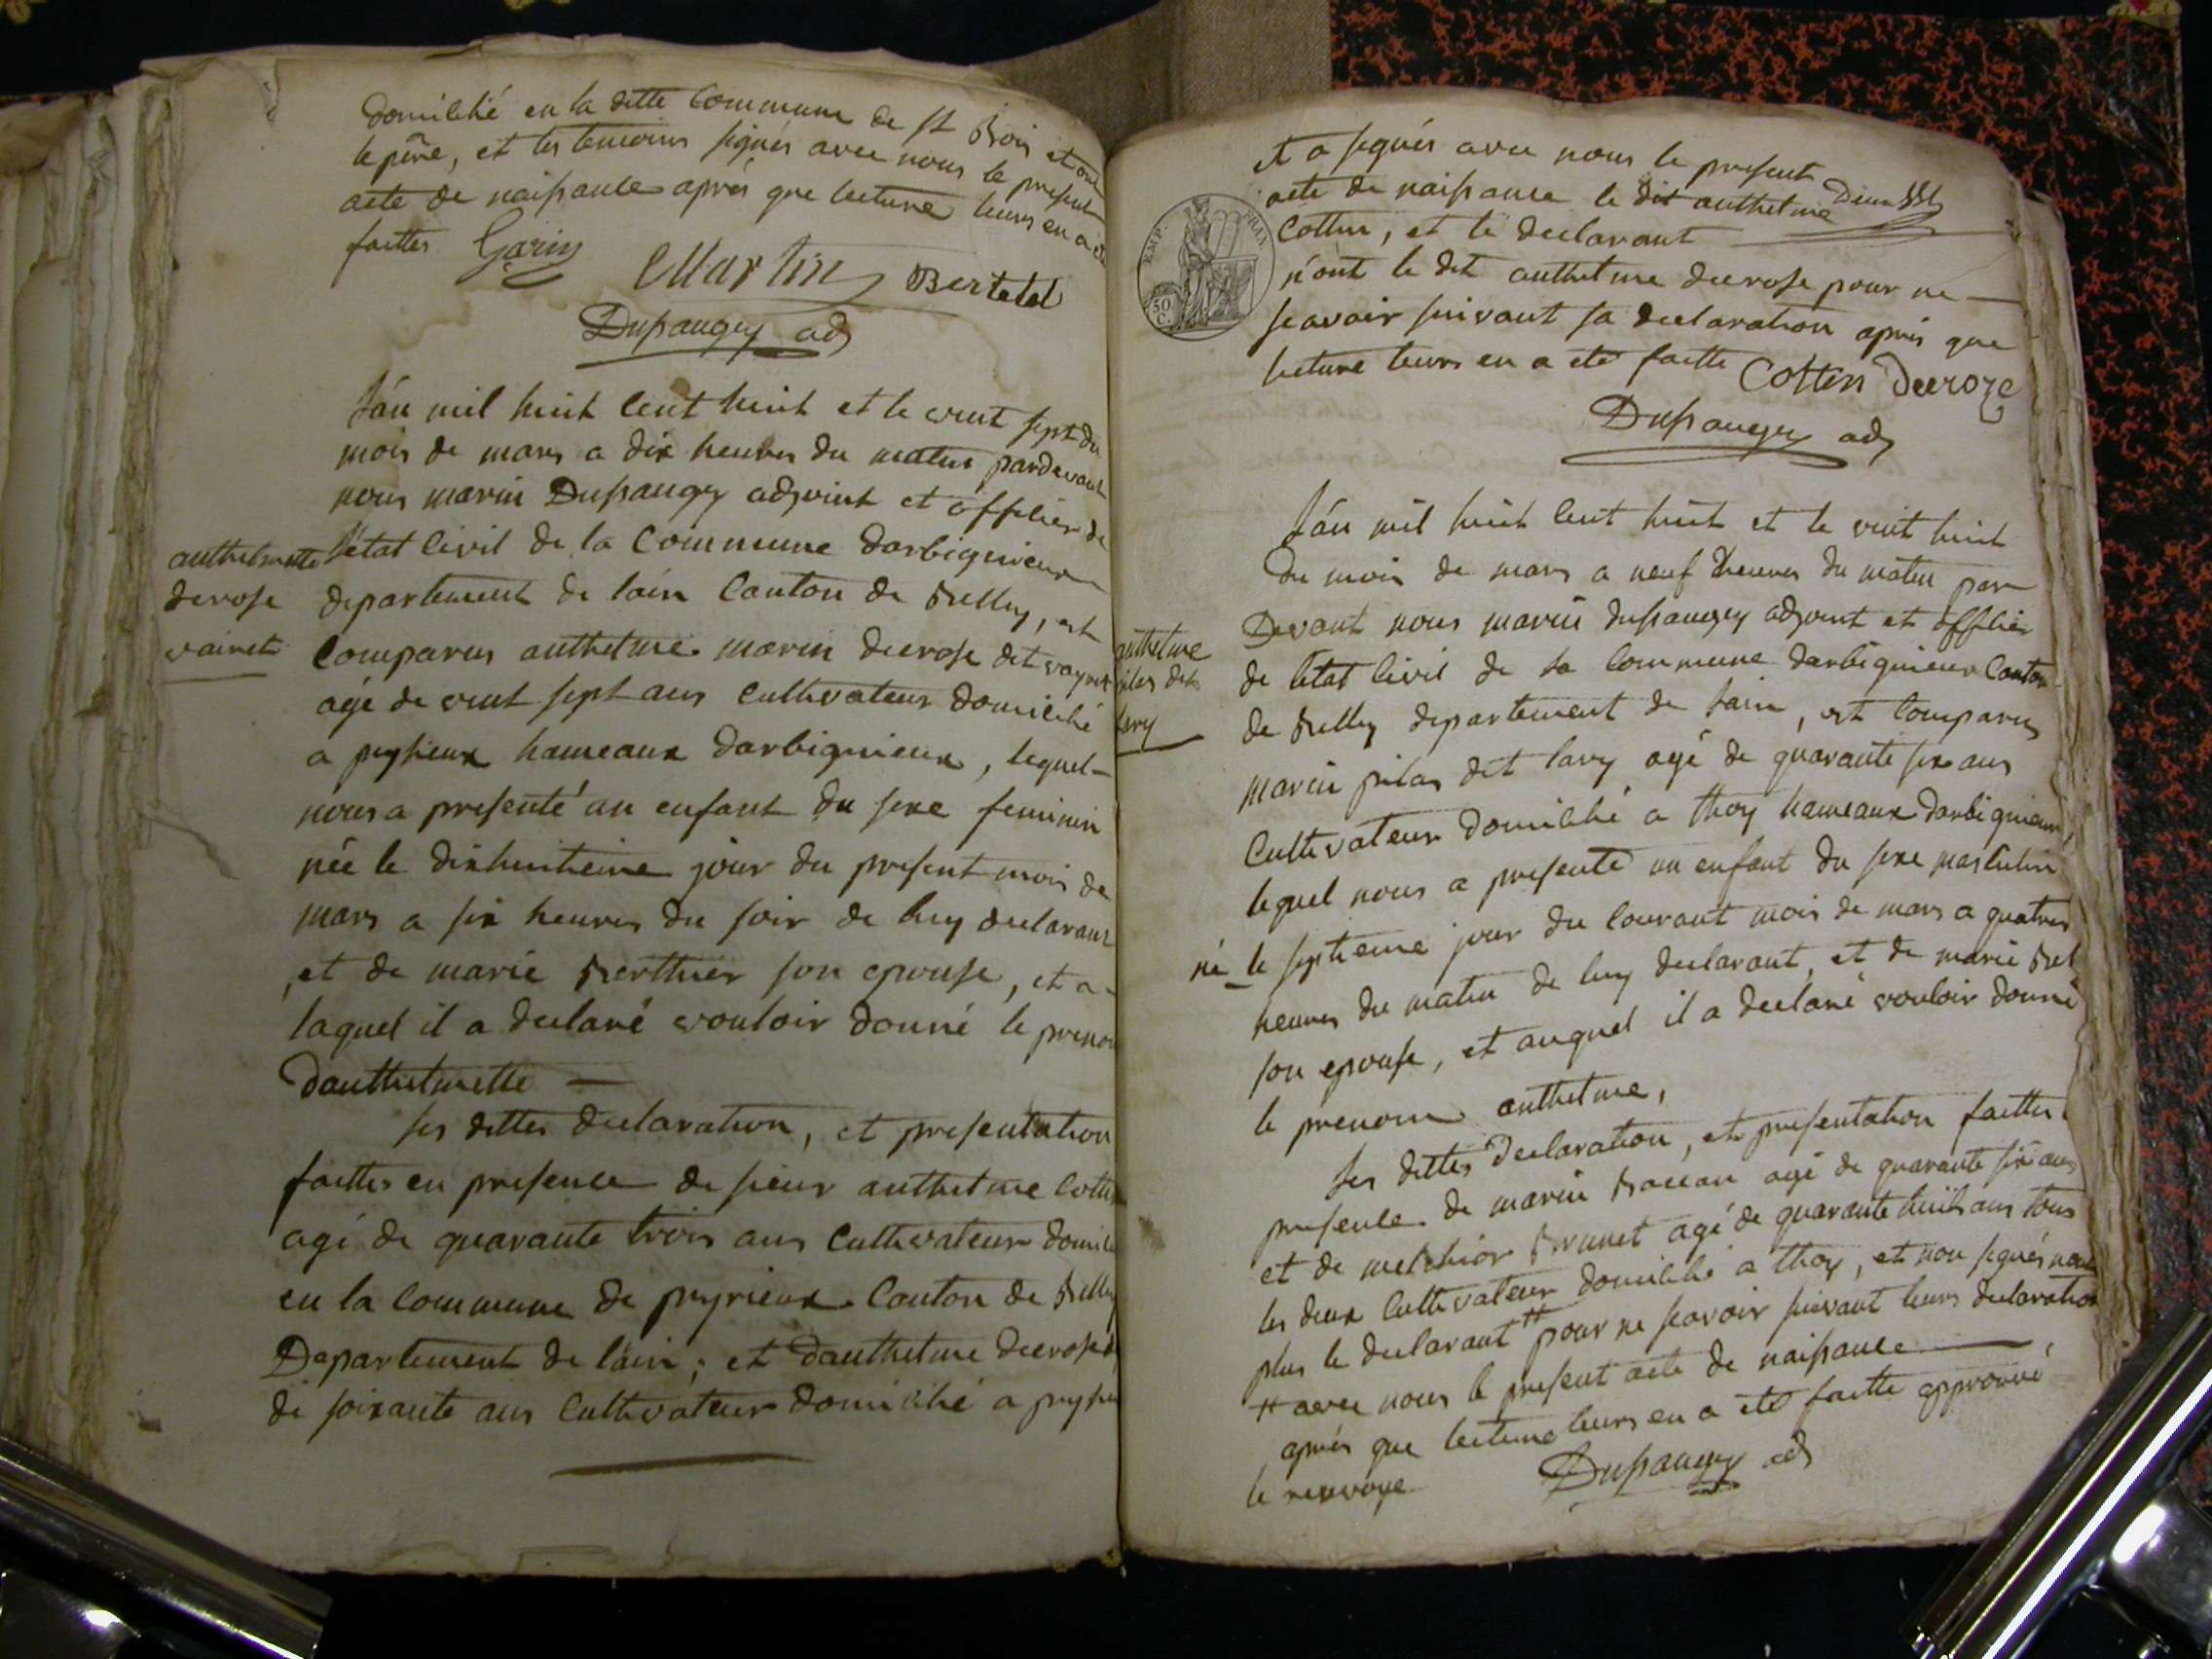 domicilié en la ditte Commune de St Bois et ont
le père, et les temoins signés avec nous le present
acte de naissance après que lecture leurs en a été
faittes Garin
Martin Bertetel
Dupaugey adj
L'án mil huit cent huit et le vint sept du
mois de mars a dix heures du matin pardevant
nous marin Dupaugey adjoint et officier de
l'état civil de la Commune darbignieux
departement de lain Canton de Belley, est
Comparus anthelme marin decrose dit vayret
agé de vint sept ans Cultivateur domicilié
a peyzieux hameaux darbignieux, lequel
nous a presenté un enfant du sexe feminin
née le dixhuitieme jour du present mois de
mars a six heures du soir de luy declarant
, et de marie Berthier son epouse, et a
laquel il a declaré vouloir donné le prenom
danthelmette
anthelmette
derose
vairet
les dittes declaration, et presentation
faittes en presence de sieur anthelme Cottin
agé de quarante trois ans Cultivateur domicilié
en la Commune de peyrieux Canton de Belley
Departement de láin; et danthelme decrose
de soixante ans Cultivateur domicilié a peyzieux
et a signés avec nous le present
acte de naissance le dit anthelme
Cottin, et le declarant
n'ont le dit anthelme decrose pour ne
scavoir suivant sa declaration après que
lecture leurs en a eté faitte Cotten Decroze
Dupaugey adj
EMP. FRAN.
50 C.
L'án mil huit cent huit et le vint huit
du mois de mars a neuf heures du matin par
Devant nous marin dupaugey adjoint et officier
de létat civil de la Commune darbignieux Canton
de Belley departement de lain, est Comparus
marin pilas dit lavy agé de quarante six ans
Cultivateur domicilié a thoy hameaux darbignieux,
lequel nous a presenté un enfant du sexe masculin
né le septieme jour du Courant mois de mars a quatres
heures du matin de luy declarant, et de marie Bel
son epouse, et auquel il a declaré vouloir donné
le prenom anthelme,
anthelme
pilas dit
lavy
les dittes declaration, et presentation faittes
presence de marin Baccan agé de quarante six ans
et de melchior Brunet agé de quarante huit ans tous
les deux Cultivateur domicilié a thoy, et non signés non
plus le declarant # pour ne scavoir suivant leurs declaration
# avec nous le present acte de naissance
après que lecture leurs en a eté faitte approuvé
le renvoye Dupaugey adj